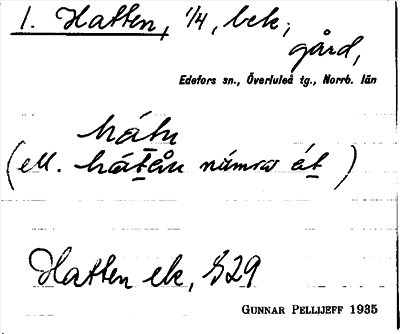 1. Hatten, 1/4, bek,
gård,
Edefors sn., Överluleå tg., Norrb. län
hátn
(ell. hátån námra át)
Hatten ek, § 29
GUNNAR PELLIJEFF 1935